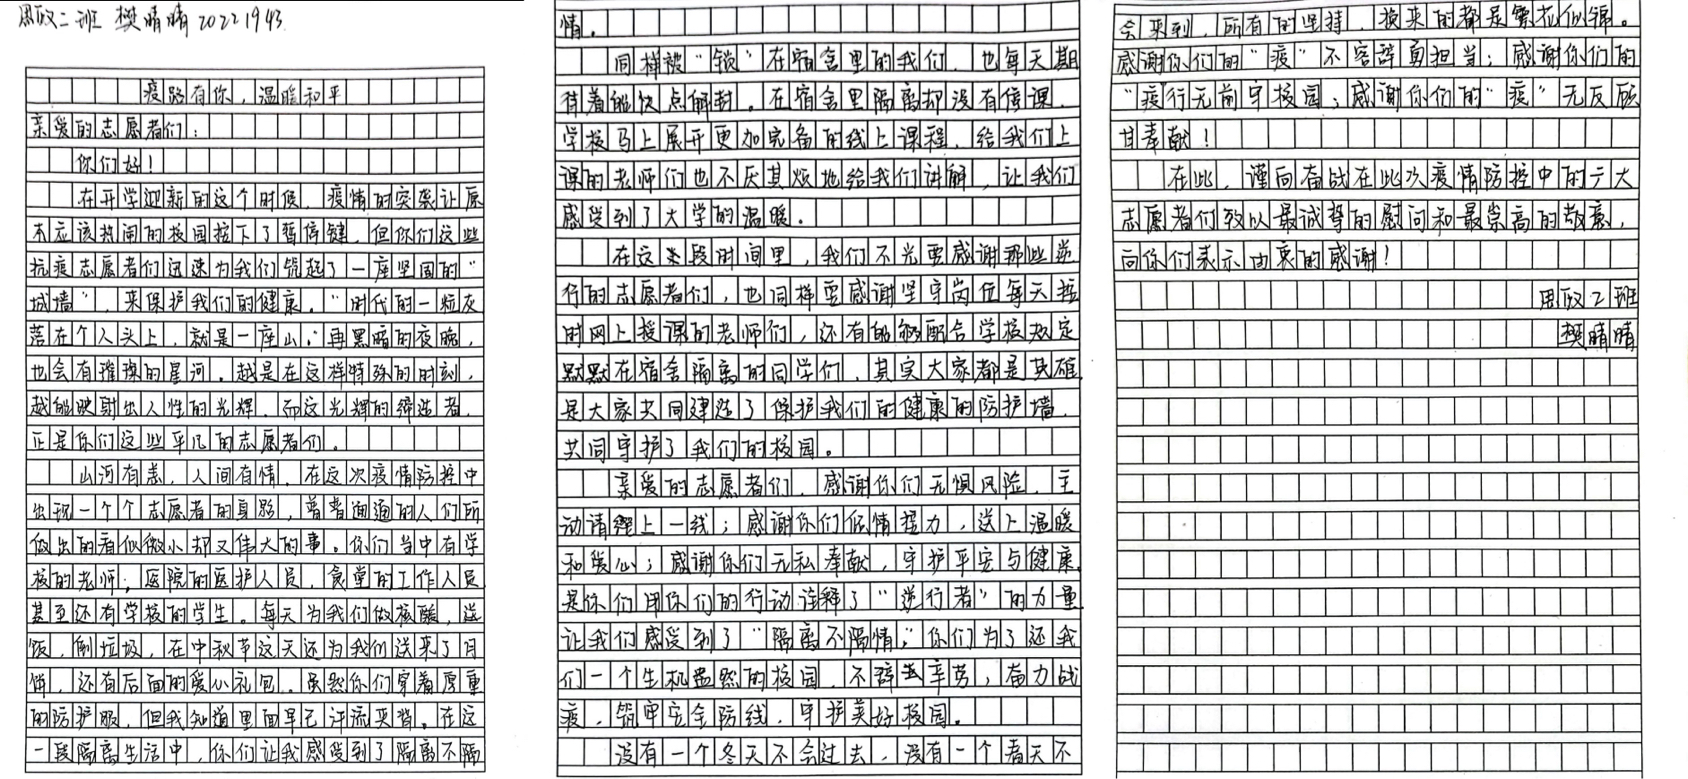 思政二班 樊晴晴 20221943
疫路有你，温暖和平
亲爱的志愿者们：
你们好！
在开学迎新的这个时候，疫情的突袭让原
本应该热闹的校园按下了暂停键，但你们这些
抗疫志愿者们迅速为我们筑起了一座坚固的“
城墙”，来保护我们的健康。“时代的一粒灰
落在个人头上，就是一座山”；再黑暗的夜晚，
也会有璀璨的星河。越是在这样特殊的时刻，
越能映射出人性的光辉，而这光辉的缔造者，
正是你们这些平凡的志愿者们。
山河有恙，人间有情，在这次疫情防控中
出现一个个志愿者的身路，普普通通的人们所
做出的看似微小却又伟大的事。你们当中有学
校的老师，医院的医护人员，食堂的工作人员
甚至还有学校的学生。每天为我们做核酸，送
饭，倒垃圾，在中秋节这天还为我们送来了月
饼，还有后面的爱心礼包。虽然你们穿着厚重
的防护服，但我知道里面早已汗流夹背。在这
一段隔离生活中，你们让我感受到了隔离不隔
情。
同样被“锁”在宿舍里的我们，也每天期
待着能快点解封。在宿舍里隔离却没有停课，
学校马上展开更加完备的线上课程，给我们上
课的老师们也不厌其烦地给我们讲解，让我们
感受到了大学的温暖。
在这类段时间里，我们不光要感谢那些逆
行的志愿者们，也同样要感谢坚守岗位每天按
时网上授课的老师们，还有能够配合学校规定
默默在宿舍隔离的同学们，其实大家都是英雄
是大家共同建造了保护我们的健康的防护墙，
共同守护了我们的校园。
亲爱的志愿者们，感谢你们无惧风险，主
动请缨上一线；感谢你们倾情接力，送上温暖
和爱心；感谢你们无私奉献，守护平安与健康
是你们用你们的行动诠释了“逆行者”的力量
让我们感受到了“隔离不隔情；你们为了还我
们一个生机盎然的校园，不辞辛劳，奋力战
疫，筑牢安全防线，守护美好校园。
没有一个冬天不会过去，没有一个春天不
会来到，所有的坚持，换来的都是繁花似锦。
感谢你们的“疫”不容辞勇担当；感谢你们的
“疫行无前守校园；感谢你们的“疫”无反顾
甘奉献！
在此，谨向奋战在此次疫情防控中的广大
志愿者们致以最诚挚的慰问和最崇高的敬意，
向你们表示由衷的感谢！
思政2班
樊晴晴